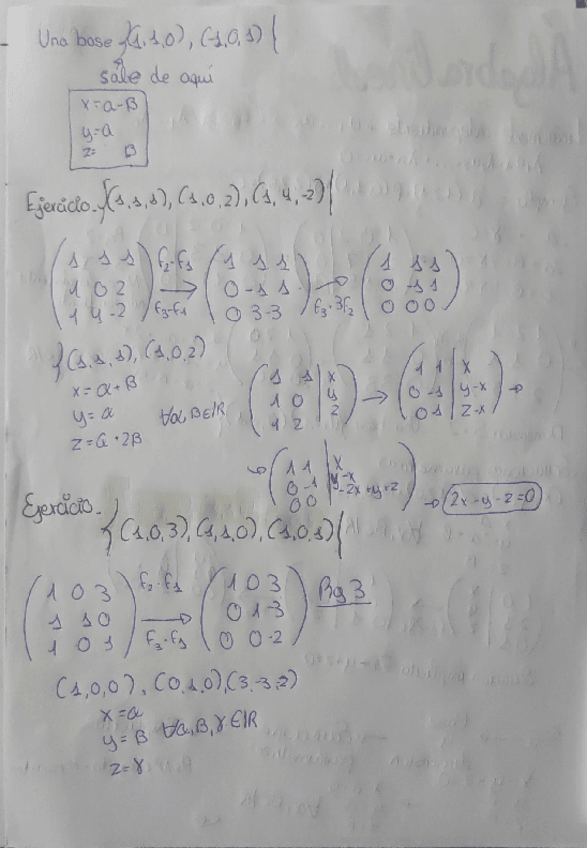 Una base {(1,1,0), (-1,0,1)}
sale de aquí
x=α-β
y=α
z= β
Ejercicio.- {(1,1,1), (1,0,2), (1,4,-2)}
(1 1 1 | 1 0 2 | 1 4 -2) f2-f1 → f3-f1 (1 1 1 | 0 -1 1 | 0 3 -3) → f3+3f2 (1 1 1 | 0 -1 1 | 0 0 0)
{(1,1,1), (1,0,2)
x=α+β
y=α ∀α,β∈ℝ
z=α+2β
(1 1 | x
1 0 | y
1 2 | z) → (1 1 | x
0 -1 | y-x
0 1 | z-x) →
→ (1 1 | x
0 -1 | y-x
0 0 | -2x+y+z) → 2x-y-z=0
Ejercicio.- {(1,0,3), (1,1,0), (1,0,1)}
(1 0 3 | 1 1 0 | 1 0 1) f2-f1 → f3-f1 (1 0 3 | 0 1 -3 | 0 0 -2) Rg 3
(1,0,0), (0,1,0)(3,-3,2)
x=α
y=β ∀α,β,γ∈ℝ
z=γ